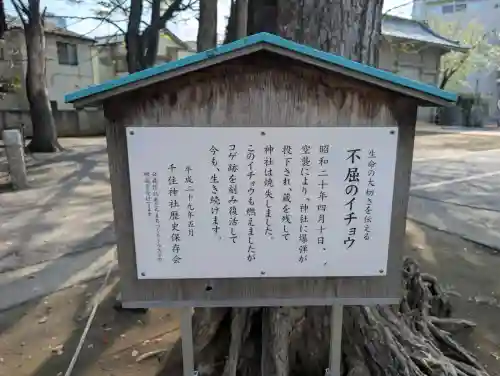 生命の大切さを伝える
不屈のイチョウ
昭和二十年四月十日、
空襲により、神社に爆弾が
投下され、蔵を残して
神社は焼失しました。
このイチョウも燃えましたが
コゲ跡を刻み復活して
今も、生き続けます。
平成二十九年五月
千住神社歴史保存会